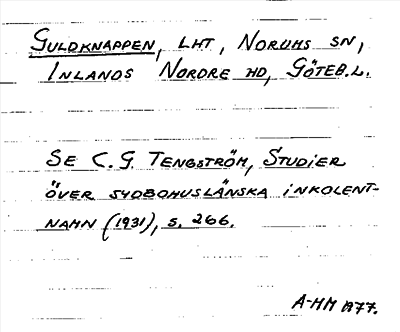 GULDKNAPPEN, LHT, NORUMS SN,
INLANDS NORDRE HD, GÖTEB.L.
SE C. G. TENGSTRÖM, STUDIER
ÖVER SYDBOHUSLÄNSKA INKOLENT-
NAMN (1931), S. 266.
A-MM 1977.